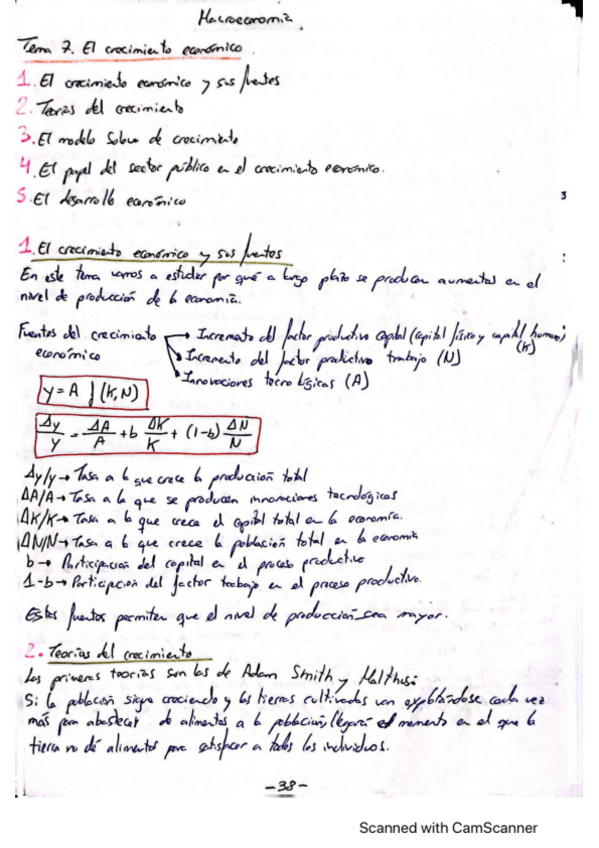 Macroeconomía
Tema 7. El crecimiento económico.
1. El crecimiento económico y sus fuentes
2. Teorías del crecimiento
3. El modelo Solow de crecimiento
4. El papel del sector público en el crecimiento económico.
5. El desarrollo económico
1. El crecimiento económico y sus fuentes
En este tema vamos a estudiar por qué a largo plazo se producen aumentos en el
nivel de producción de la economía.
Fuentes del crecimiento → Incremento del factor productivo capital (capital físico y capital humano)
económico (K)
→ Incremento del factor productivo trabajo (N)
→ Innovaciones tecnológicas (A)
y = A f (K,N)
Δy/y = ΔA/A + b ΔK/K + (1-b) ΔN/N
Δy/y → Tasa a la que crece la producción total
ΔA/A → Tasa a la que se producen innovaciones tecnológicas
ΔK/K → Tasa a la que crece el capital total en la economía.
ΔN/N → Tasa a la que crece la población total en la economía
b → Participación del capital en el proceso productivo
1-b → Participación del factor trabajo en el proceso productivo.
Estas fuentes permiten que el nivel de producción sea mayor.
2. Teorías del crecimiento
Las primeras teorías son las de Adam Smith y Malthus:
Si la población sigue creciendo y las tierras cultivadas van explotándose cada vez
más para abastecer de alimentos a la población, llegará el momento en el que la
tierra no dé alimentos para satisfacer a todos los individuos.
-38-
Scanned with CamScanner